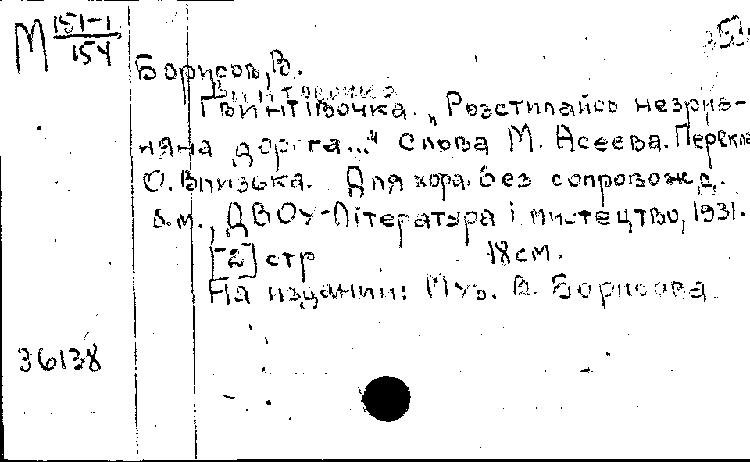 М 151-1
154
353
Борисов, В.
Винтовочка
Гвинтівочка. „Розстилайсь незрив-
няна дорога..." Слова М. Асеева. Перекла
О. Влизька. Для хора без сопровожд.
б.м., ДВОУ-Література і мистецтво, 1931.
[2] стр 18 см.
На издании: Муз. В. Борисова.
36138